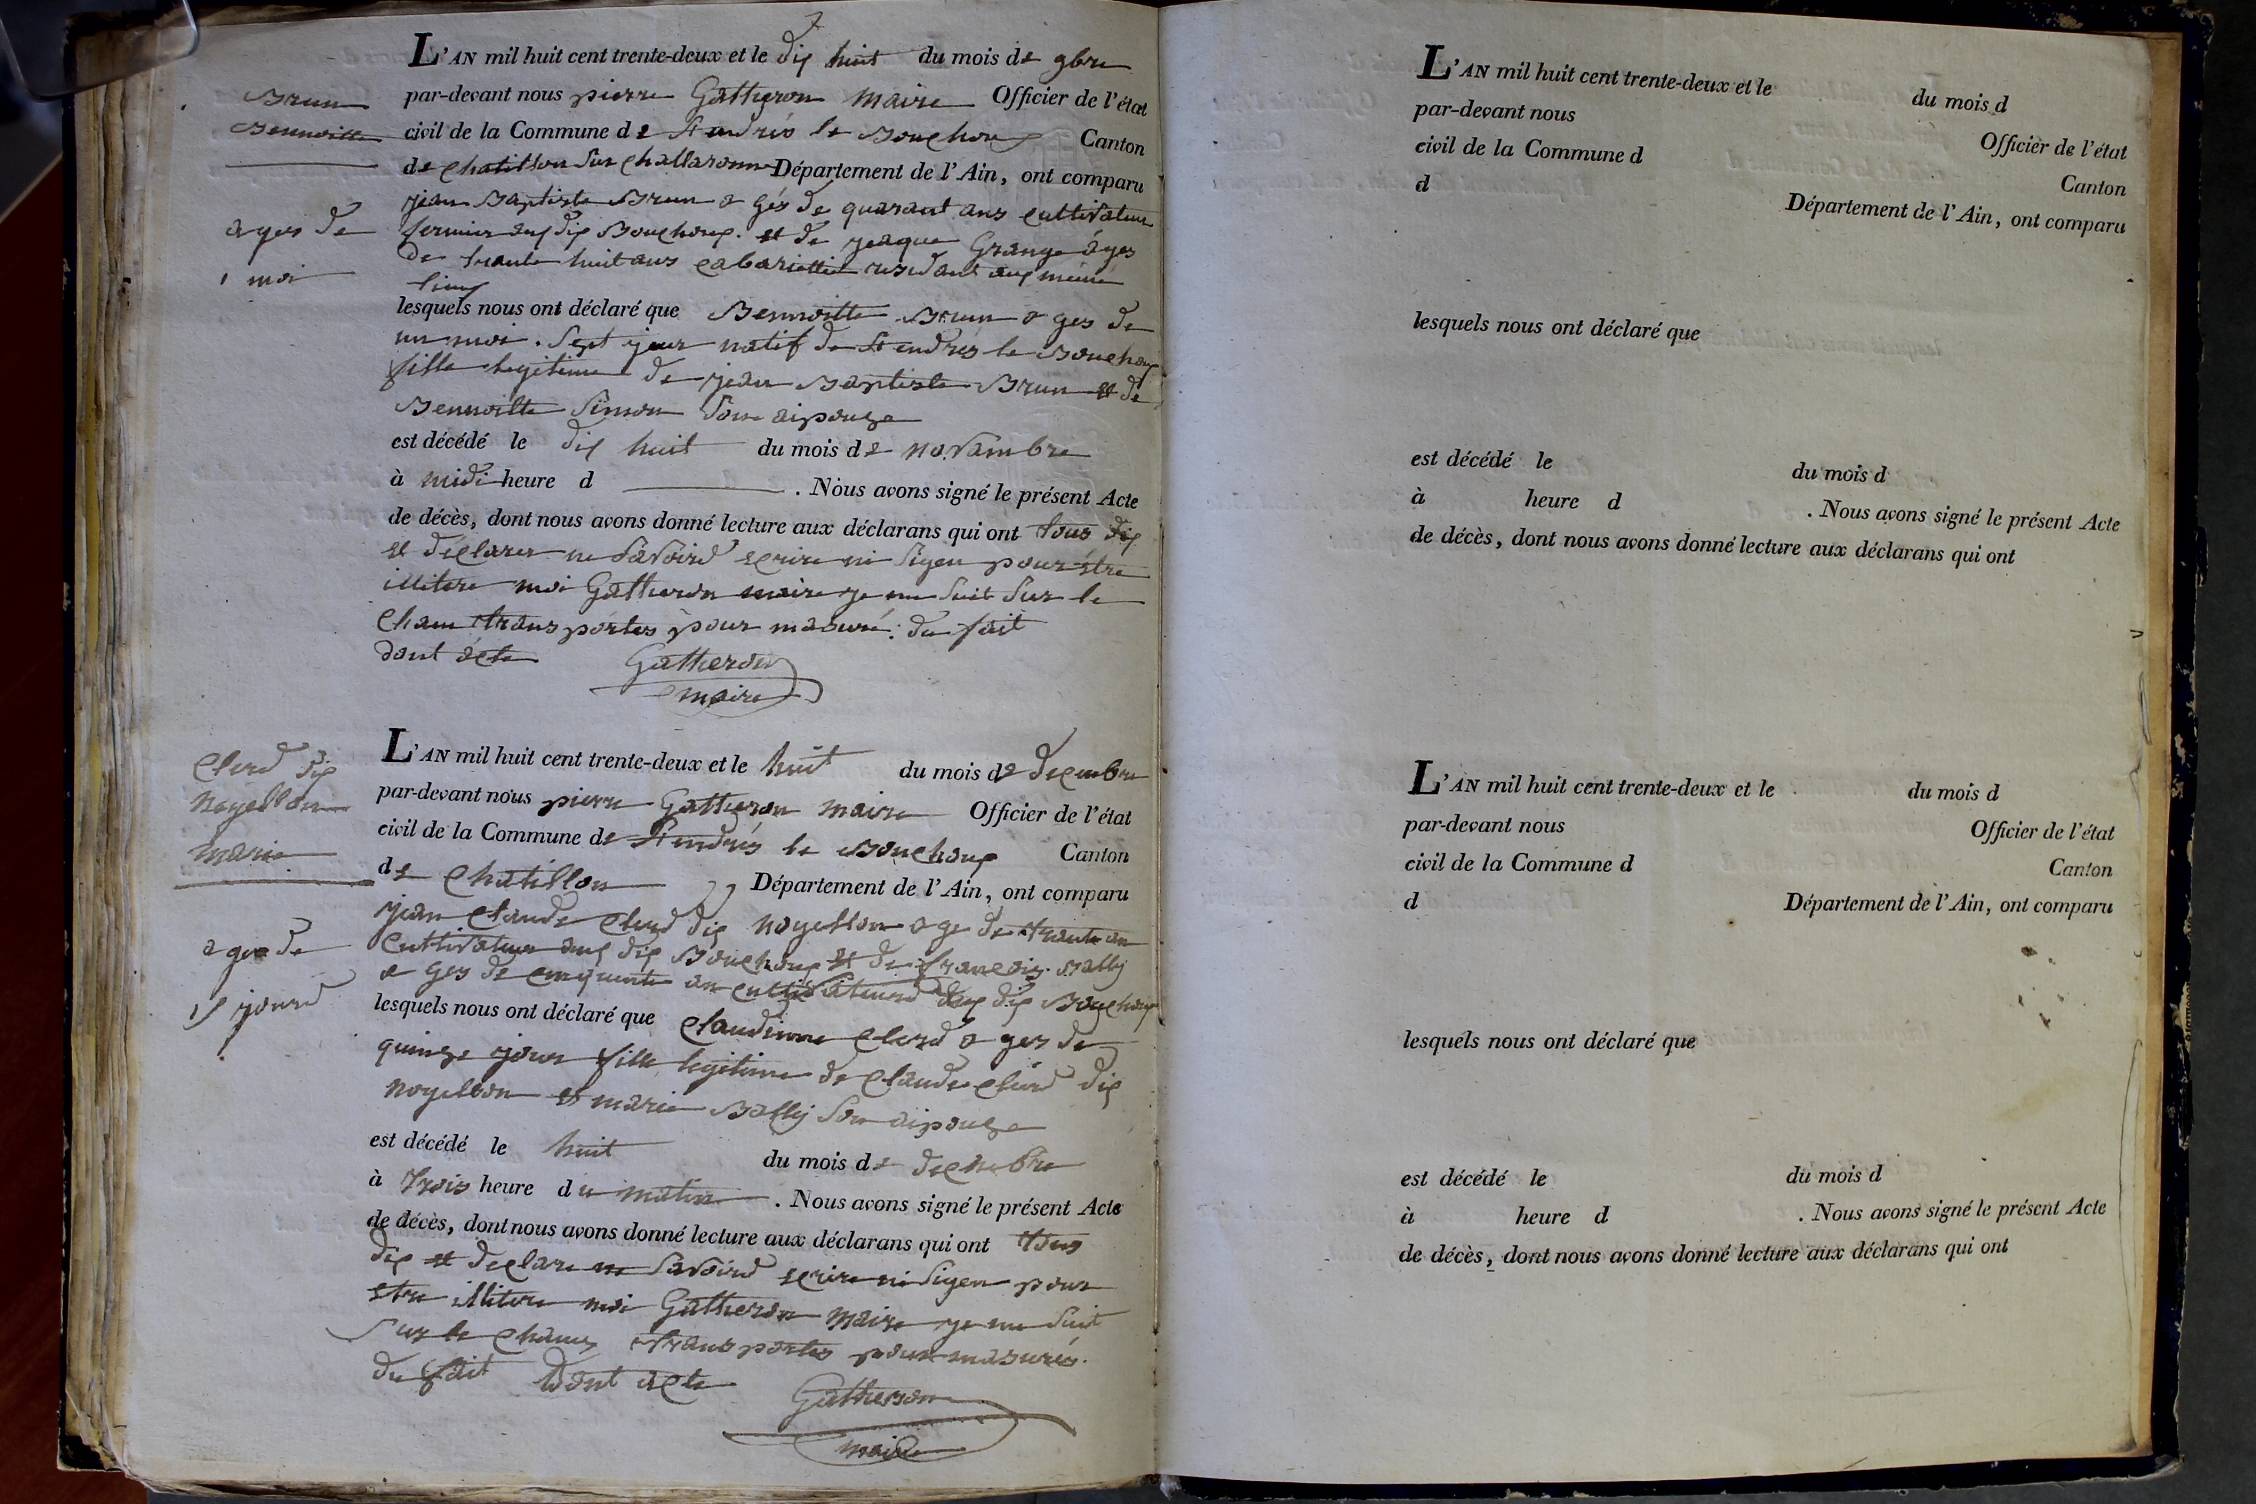 7
L'AN mil huit cent trente-deux et le dix huit du mois de 9bre
Brun
par-devant nous pierre Gatheron maire Officier de l'état
Bennoitte
civil de la Commune de St andrés le Bouchoux Canton
de Chatillon sur Challaronne Département de l'Ain, ont comparu
jean Baptiste Brun a gés de quarant ans cultivateur
ages de
fermier aux dix Bouchoux. et de jeaque Grange áges
1 moi
de trante huit ans cabariettier residant aux même
lieux
lesquels nous ont déclaré que Bennoitte Brun a ges de
un moi. sept jour natif de St andrés le Bouchoux
fille legitime de jean Baptiste Brun et de
Bennoitte Simon son aipouze
est décédé le dix huit du mois de novambre
à midi heure d . Nous avons signé le présent Acte
de décès, dont nous avons donné lecture aux déclarans qui ont tous dix
et déclarer ne savoird ecrire ni signer pour étre
illitere moi Gatheron maire je me suit sur le
cham transportes pour masuré. du fait
dont acte Gatheron
maire
L'AN mil huit cent trente-deux et le huit du mois de decembre
Clerd dix
noyellon
par-devant nous pierre Gatheron maire Officier de l'état
marie
civil de la Commune de St andrés le Bouchoux Canton
de Chatillon Département de l'Ain, ont comparu
jean Claude Clerd dix noyellon a ge de trante an
ages de
cultivateur aux dix Bouchoux et de francois Bally
a ges de cinquante an cultivateurd aux dix Bouchoux
15 jourd
lesquels nous ont déclaré que Claudinne Clerd a ges de
quinze jour fille legitime de Claude Clerd dix
noyellon et marie Bally son aipouze
est décédé le huit du mois de decembre
à trois heure du matin . Nous avons signé le présent Acte
de décès, dont nous avons donné lecture aux déclarans qui ont tous
dix et declare ne savoird ecrire ni signer pour
etre illitere moi Gatheron maire je me suit
sur le chamx transportes pour masurés.
du fait dont acte Gatheron
maire
L'AN mil huit cent trente-deux et le du mois d
par-devant nous Officier de l'état
civil de la Commune d Canton
d Département de l'Ain, ont comparu
lesquels nous ont déclaré que
est décédé le du mois d
à heure d . Nous avons signé le présent Acte
de décès, dont nous avons donné lecture aux déclarans qui ont
L'AN mil huit cent trente-deux et le du mois d
par-devant nous Officier de l'état
civil de la Commune d Canton
d Département de l'Ain, ont comparu
lesquels nous ont déclaré que
est décédé le du mois d
à heure d . Nous avons signé le présent Acte
de décès, dont nous avons donné lecture aux déclarans qui ont